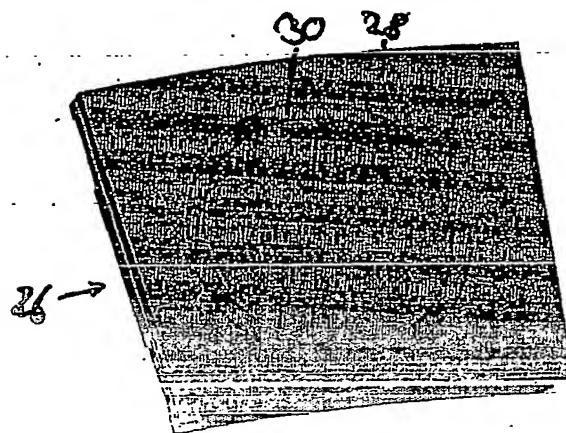 30 28
26